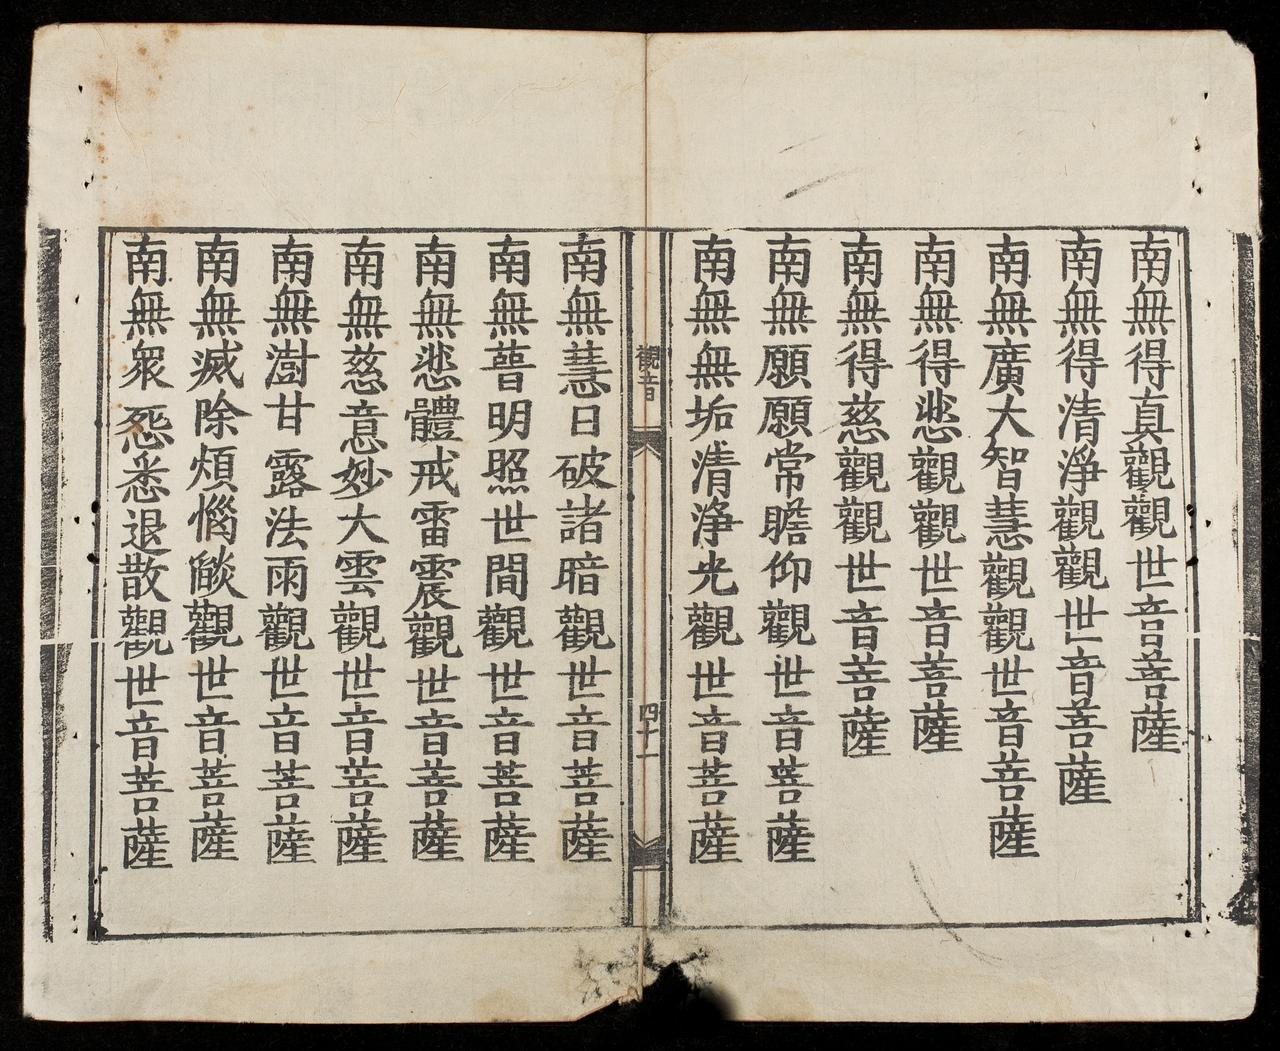 南無得真觀觀世音菩薩
南無得清淨觀觀世音菩薩
南無廣大智慧觀觀世音菩薩
南無得悲觀觀世音菩薩
南無得慈觀觀世音菩薩
南無願願常瞻仰觀世音菩薩
南無無垢清淨光觀世音菩薩
觀音
四十一
南無慧日破諸暗觀世音菩薩
南無普明照世間觀世音菩薩
南無悲體戒雷震觀世音菩薩
南無慈意妙大雲觀世音菩薩
南無澍甘露法雨觀世音菩薩
南無滅除煩惱燄觀世音菩薩
南無衆怨悉退散觀世音菩薩